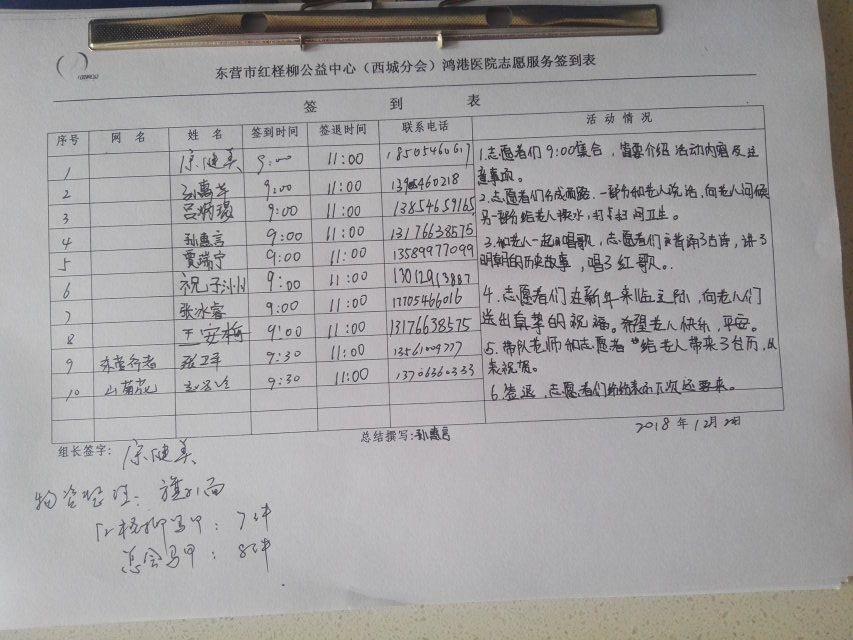 东营市红柽柳公益中心（西城分会）鸿港医院志愿服务签到表
签 到 表
序号 网 名 姓 名 签到时间 签退时间 联系电话 活 动 情 况
1 9:00 11:00 18505460617
2 孙惠芹 9:00 11:00
3 吕炳瑗 9:00 11:00 13854659165
4 孙惠言 9:00 11:00 13176638575
5 贾瑞宁 9:00 11:00 13589977099
6 祝子洲 9:00 11:00
7 张冰睿 9:00 11:00 17705466016
8 王安梅 9:00 11:00 13176638575
9 东营行者 张卫平 9:30 11:00
10 山菊花 9:30 11:00 13706360333
1.志愿者们9:00集合，简要介绍活动内容及注
意事项。
2.志愿者们分成两路.一部分和老人说话，向老人问候
另一部分给老人换水，打扫房间卫生。
3.和老人一起唱歌，志愿者们主动背诵了古诗，讲了
明朝的历史故事，唱了红歌。
4.志愿者们在新年来临之际，向老人们
送出真挚的祝福。希望老人快乐，平安。
5.带队老师和志愿者给老人带来了台历，以
表祝福。
6.签退，志愿者们纷纷表示下次还要来。
组长签字： 总结撰写:孙惠言 2018年12月
物资整理: 旗帜1面
红柽柳马甲：7件
总会马甲：8件